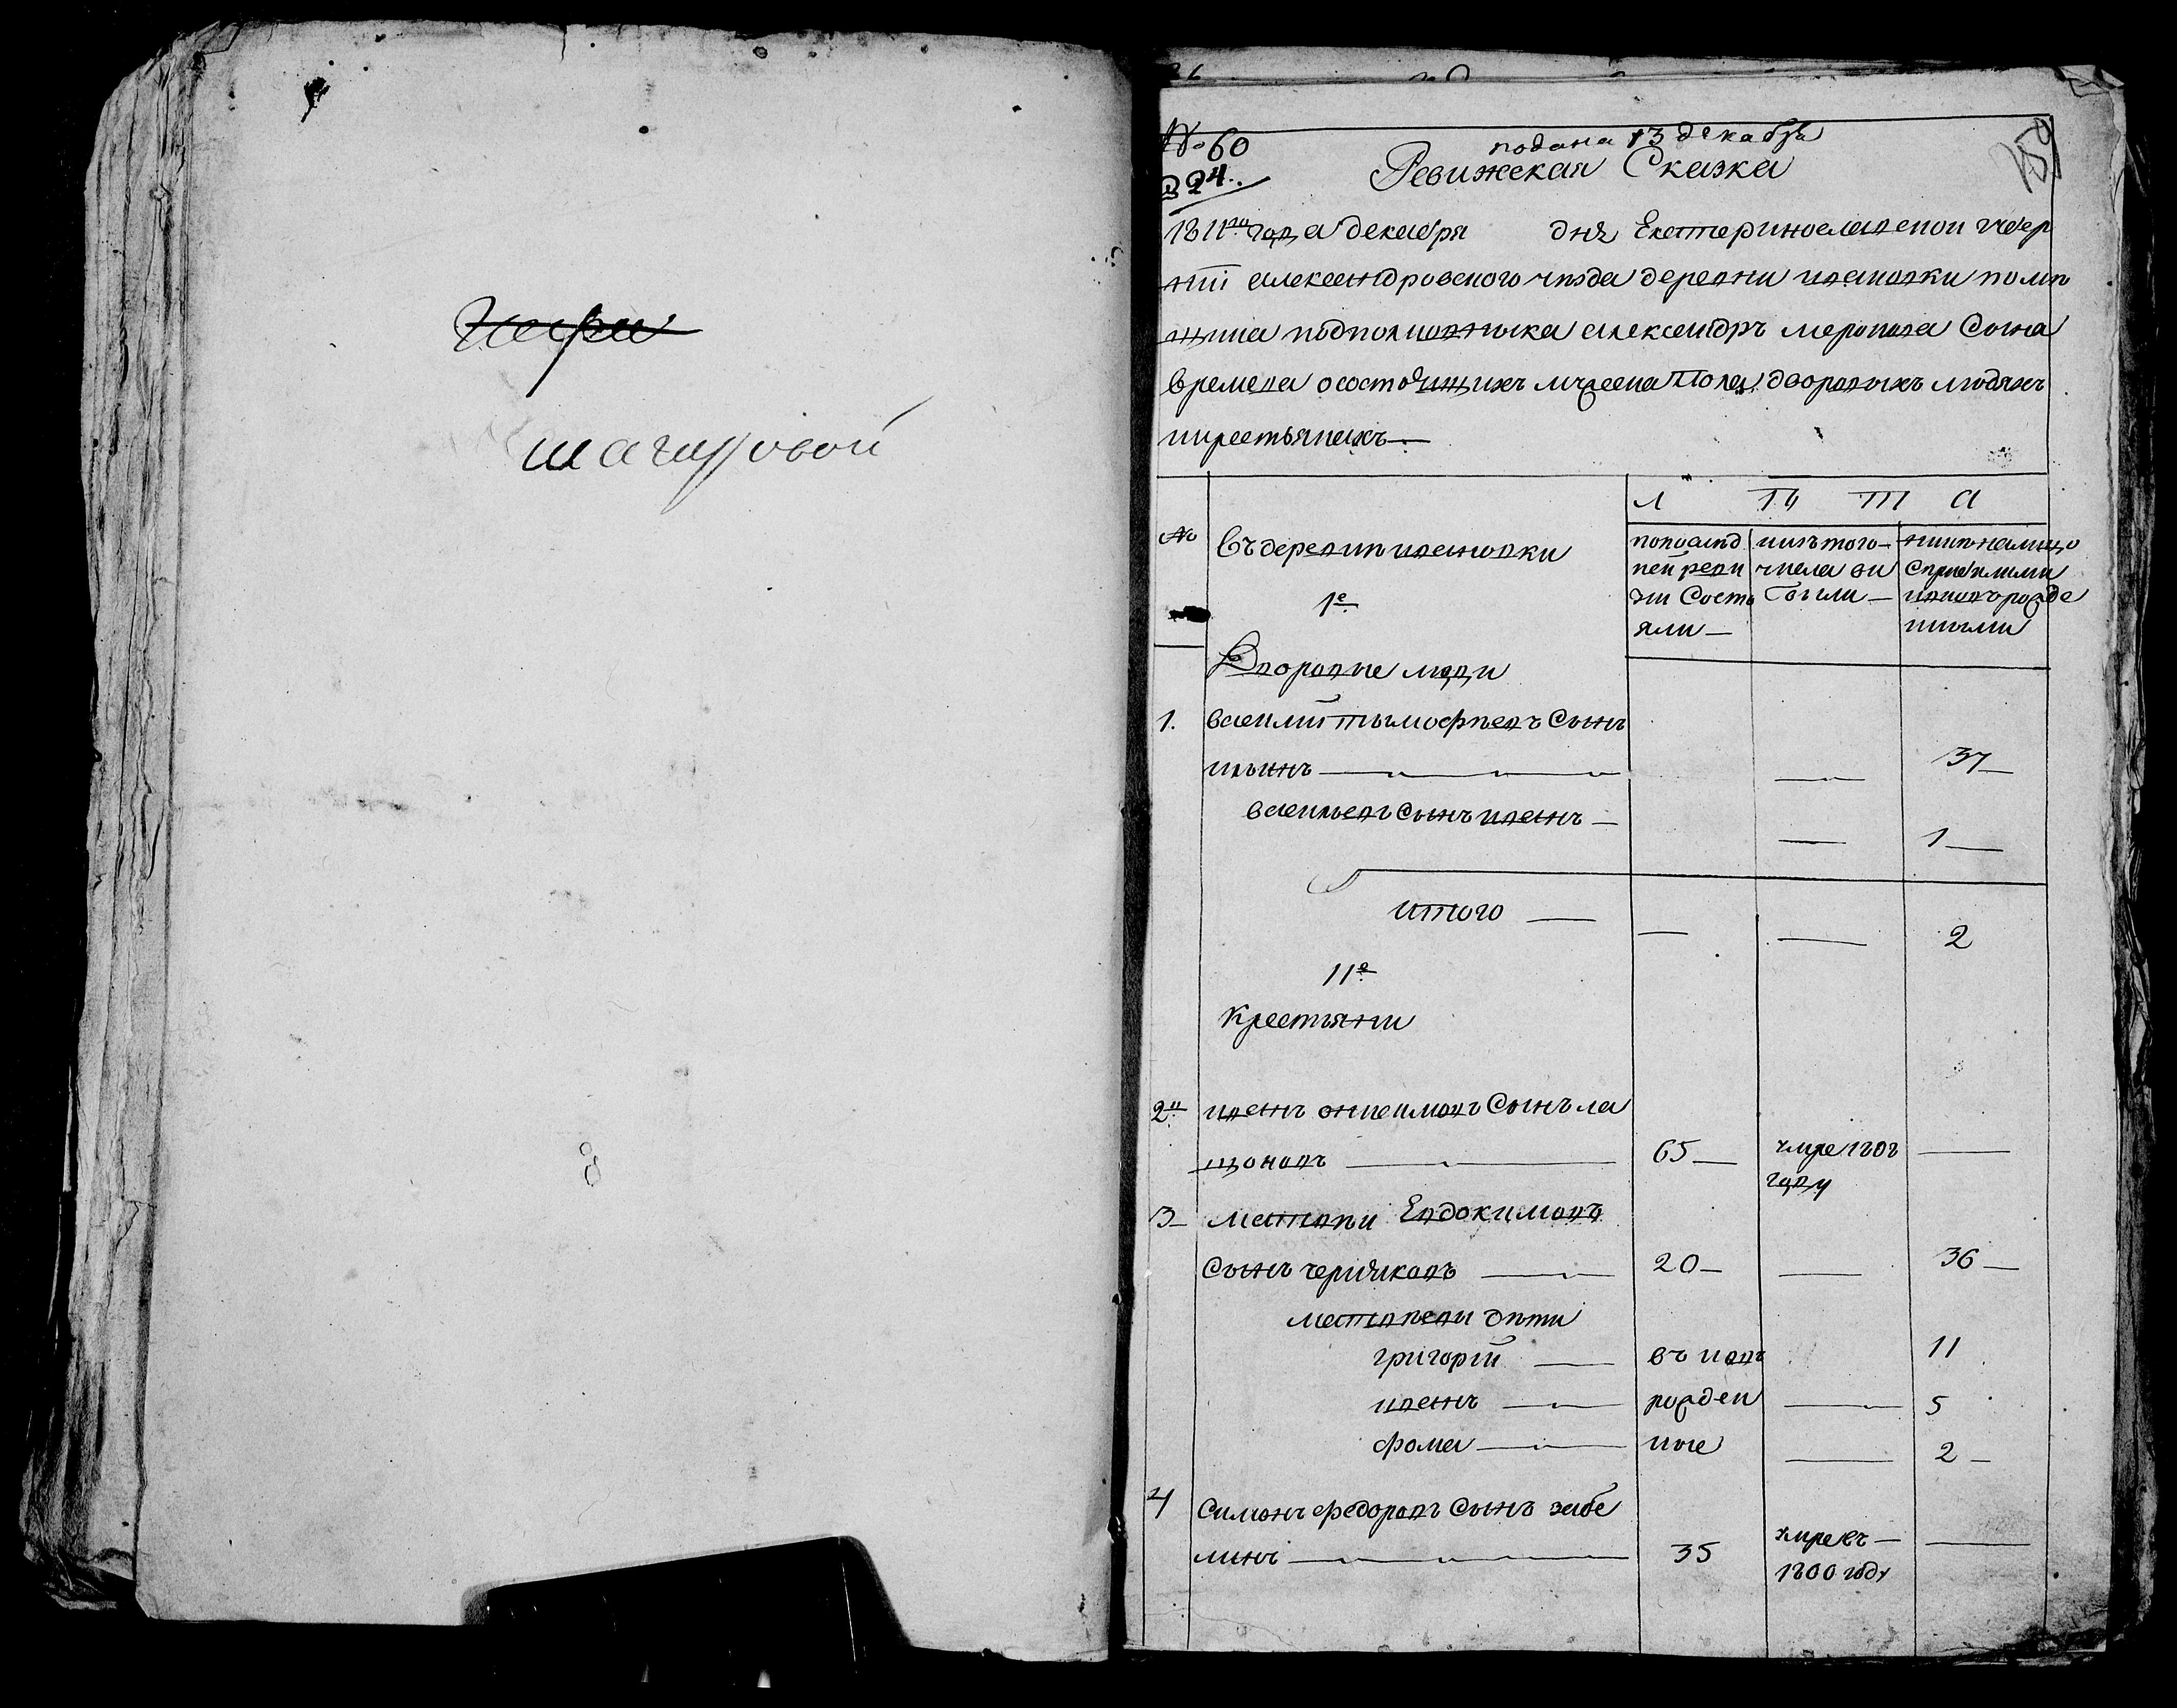 шагаровой
8
№ 60
подана 13 декабря
224.
259
Ревижская Сказка
1811го года декабря дня Екатеринославской губер
нии александровского уезда деревни ивановки поме
щика подполковника александръ маркова Сына
о состоящихъ мужеска пола дворовыхъ людяхъ
икрестьянехъ —
Л ѣ т а
№
въ деревни ивановки
1е
попослѣд
ней реви
зии Состо
яли —
изъ того —
числа вы
были —
ныне налицо
иновъ рожде
ными
Дворовые люди
1. василий тымофѣевъ Сынъ
ильинъ — 37 —
васильевъ Сынъ иванъ — 1 —
итого — 2
11е
Крестьяни
2й иванъ онисимовъ Сынъ ла
щоновъ — 65 — умре 1808 —
году
3 — матвѣй Евдокимовъ
Сынъ черняковъ — 20 — 36 —
матвѣевы дѣти
григорий — въ новъ 11
иванъ — рожден 5
фома — ные 2 —
4 Симонъ федоровъ Сынъ забе
линъ — 35 умре въ —
1800 году